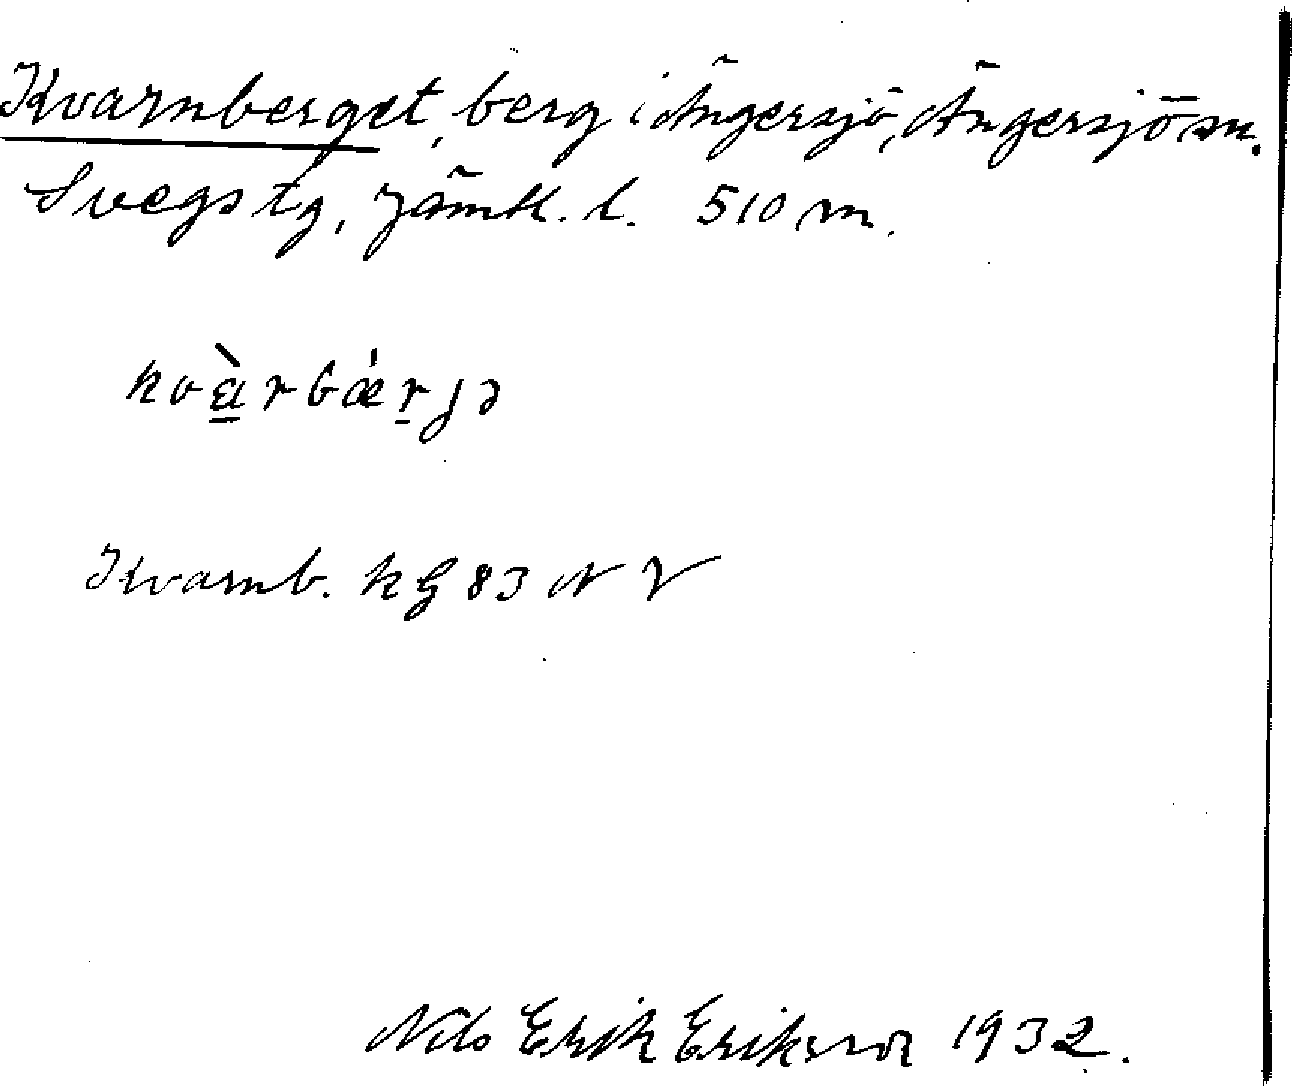 Kvarnberget, berg i Ängersjö, Ängersjö sn.
Svegs tg, Jämtl. l. 510 m.
kvà̱rbǽṟɟə
Kvarnb. kg 83 NV
Nils Erik Eriksson 1932.